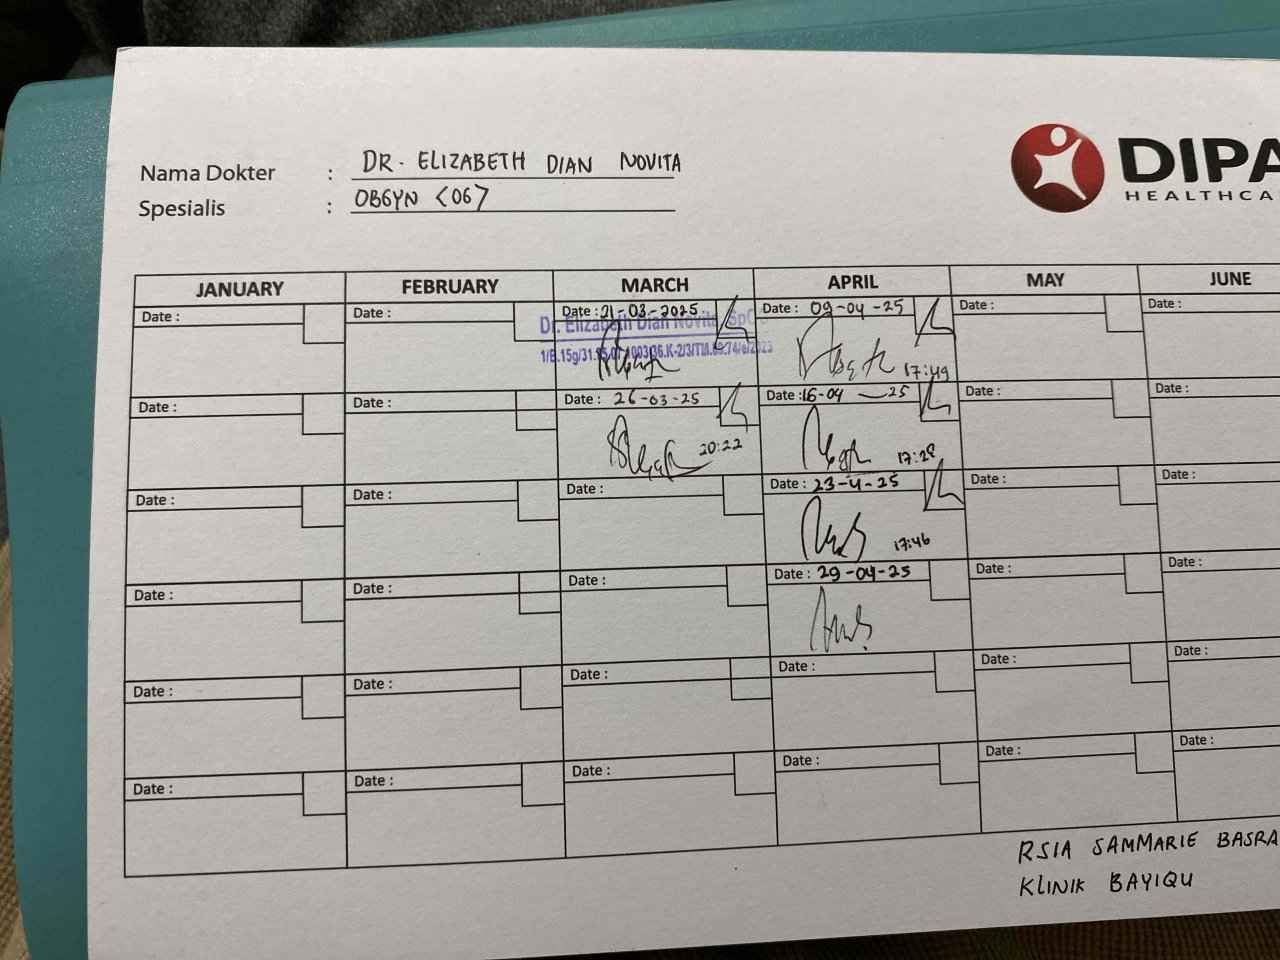 Nama Dokter : DR. ELIZABETH DIAN NOVITA
Spesialis : OBGYN <06>
DIPA
HEALTHCA
JANUARY FEBRUARY MARCH APRIL MAY JUNE
Date : Date : Date : 21-03-2025 Date : 09-04-25 Date : Date :
Dr. Elizabeth Dian Novita, SpOG
17:49
Date : Date : Date : 26-03-25 Date : 16-04-25 Date : Date :
20:22 17:28
Date : Date : Date : Date : 23-4-25 Date : Date :
17:46
Date : Date : Date : Date : 29-04-25 Date : Date :
Date : Date : Date : Date : Date : Date :
Date : Date : Date : Date : Date : Date :
RSIA SAMMARIE BASRA
KLINIK BAYIQU